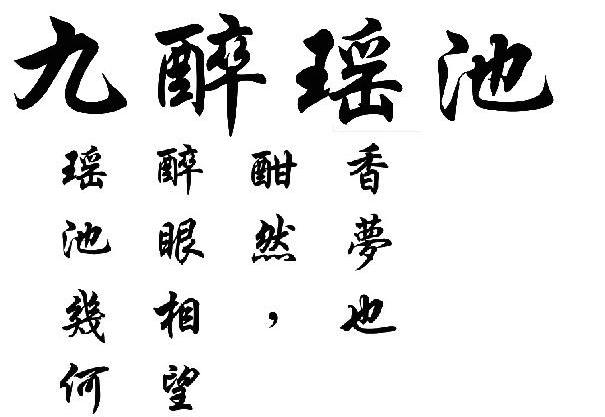 九醉瑶池
瑶池幾何
醉眼相望
酣然，
香夢也